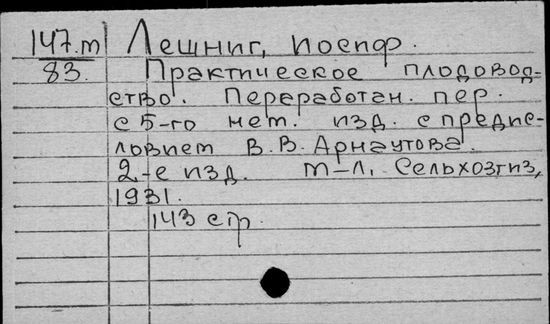 147.м Лешниг, Иосиф.
83. Практическое плодовод-
ство. Переработан. пер.
с 5-го нем. изд. с предис-
ловием В.В. Арнаутова.
2-е изд. М-Л. Сельхозгиз,
1931.
143 стр.